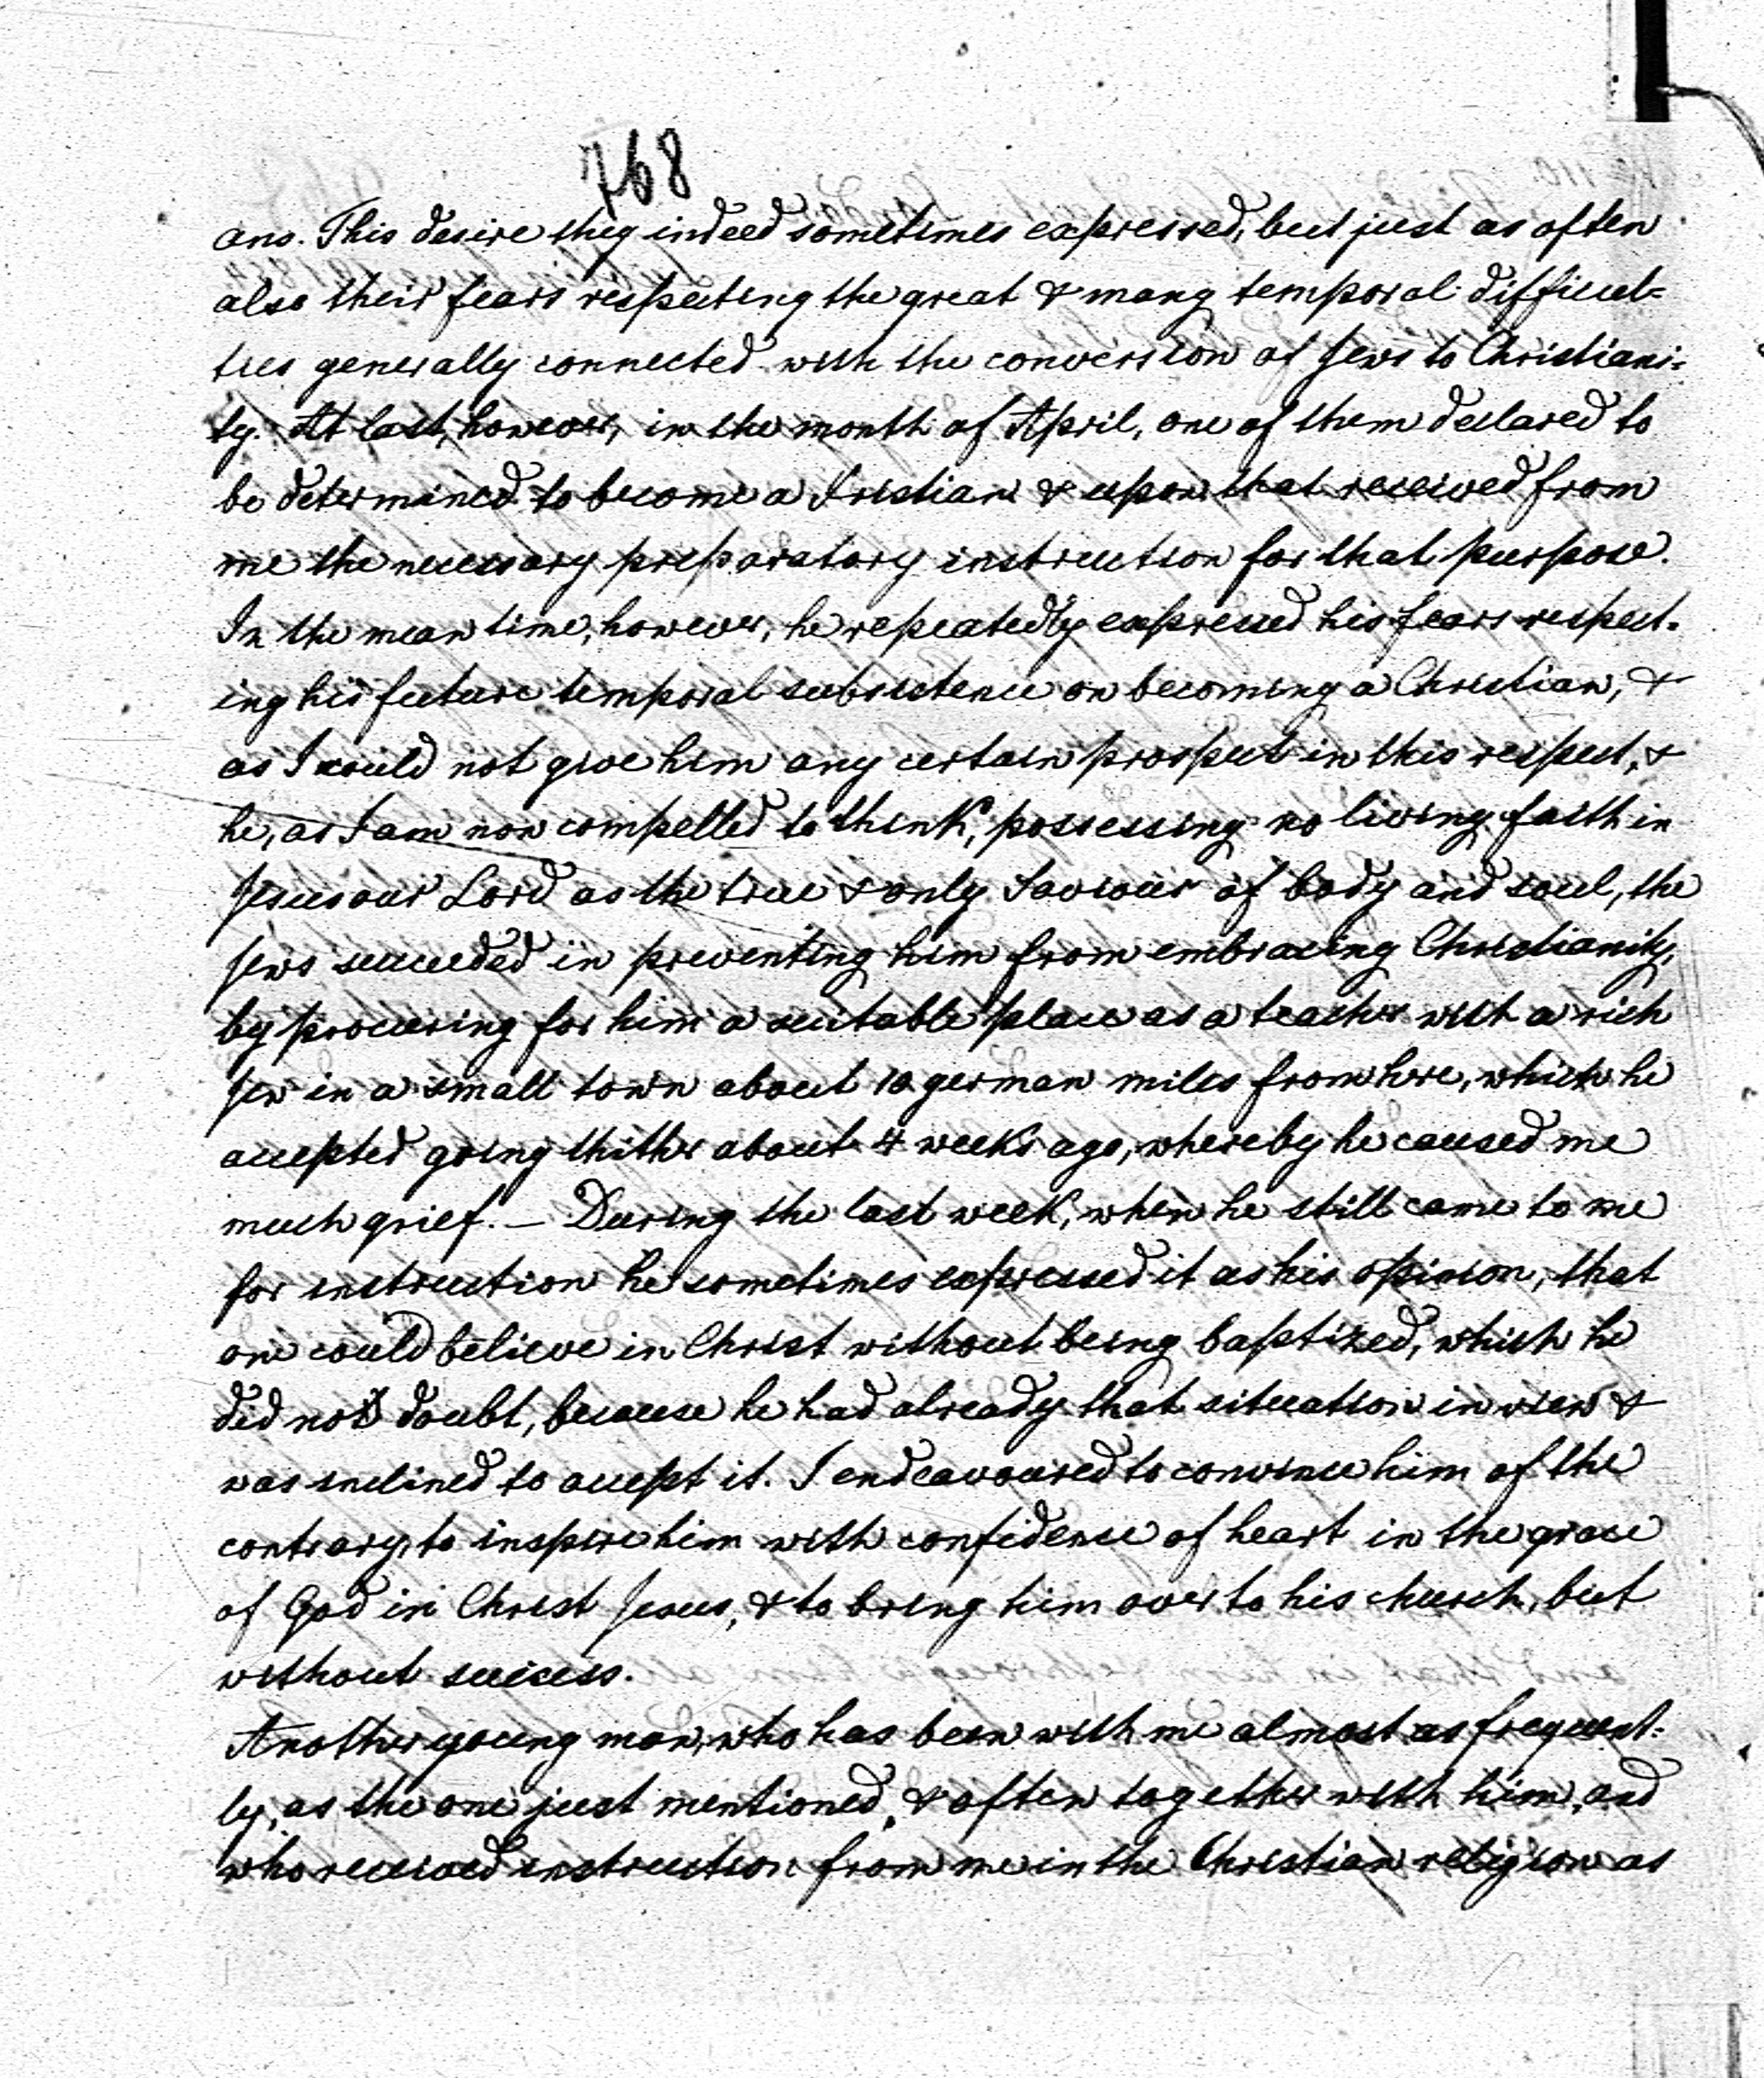 768
ans. This desire they indeed sometimes expressed, but just as often
also their fears respecting the great & many temporal difficul=
ties generally connected with the conversion of Jews to Christiani=
ty. At last, however, in the month of April, one of them declared to
be determined to become a Fristian & upon that received from
me the necessary preparatory instruction for that purpose.
In the mean time, however, he repeatedly expressed his fears respect-
ing his future temporal subsistence on becoming a Christian, &
as I could not give him any certain prospect in this respect, &
he, as I am now compelled to think, possessing no living faith in
Jesus our Lord as the true & only Saviour of body and soul, the
Jews succeeded in preventing him from embracing Christianity,
by procuring for him a suitable place as a teacher with a rich
Jew in a small town about 10 german miles from here, which he
accepted going thither about 4 weeks ago, whereby he caused me
much grief. — During the last week, when he still came to me
for instruction he sometimes expressed it as his opinion, that
one could believe in Christ without being baptized, which he
did not doubt, because he had already that situation in view &
was inclined to accept it. I endeavoured to convince him of the
contrary, to inspire him with confidence of heart in the grace
of God in Christ Jesus, & to bring him over to his church, but
without success.
Another young man, who has been with me almost as frequent=
ly, as the one just mentioned, & often together with him, and
who received instruction from me in the Christian religion as